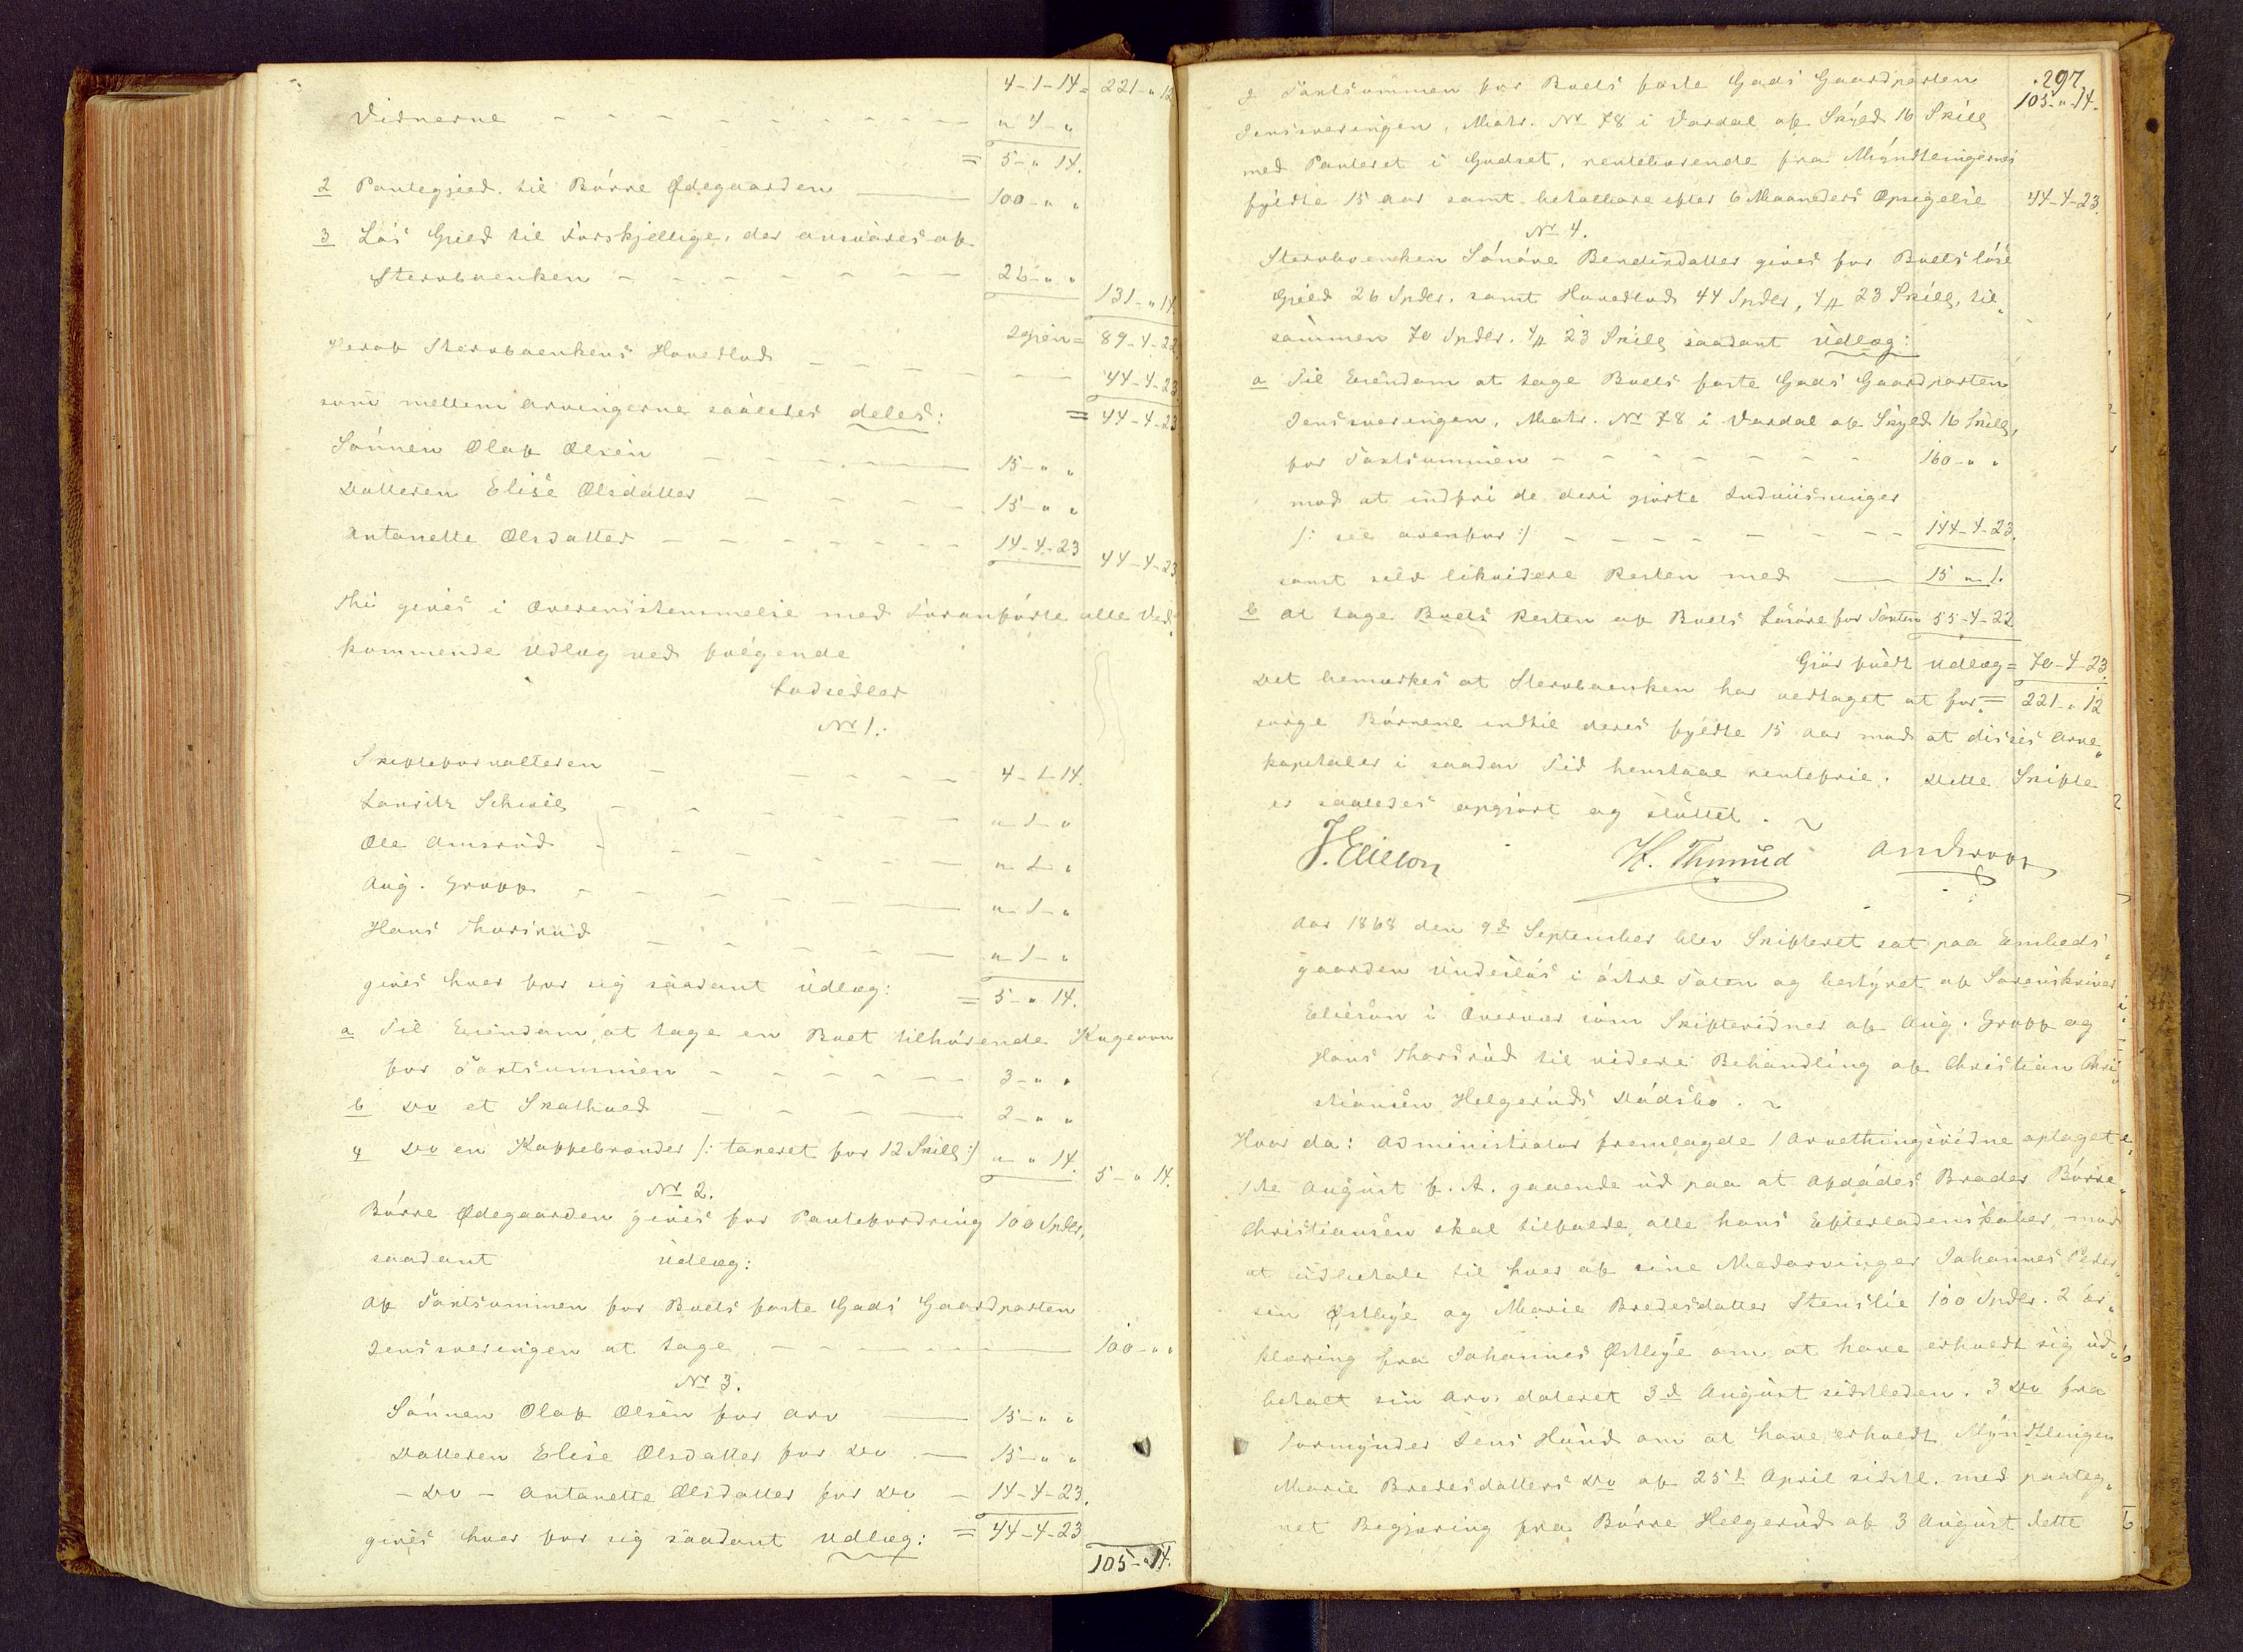 4-1-14= 221-"12
Vidnerne - - - " 4-"
= 5-" 14.
2 Pantegjeld til Börre Ødegaarden — 100-" "
3 Lös Gjeld til Forskjellige, der ansvares af
Stervboenken - - - 26-" " 131-" 14.
igjen= 89-4-22
Heraf Stervboenkens Hovedlod - - - 44-4-23
som mellem Arvingerne saaledes deles: = 44-4-23
Sönnen Olaf Olsen - - - 15-" "
Datteren Elise Olsdatter - - - 15-" "
Antonette Olsdatter - - - 14-4-23 44-4-23
Thi gives i Overensstemmelse med Foranförte alle Ved„
kommende Udlæg ved følgende
Lodsedler
No 1.
Skifteforvalteren - - - 4-1-14.
Lauritz Schwie - - " 1-"
Ole Amsrud - - - " 1-"
Aug. Gropp - - - " 1-"
Hans Thorsrud - - - " 1-"
gives hver for sig saadant Udlæg: = 5-" 14.
a Til Eiendom at tage en Boet tilhörende Kogeovn
for Taxtsummen - - - 3-" "
b Do et Skathved - - - 2-" "
c Do en Kaffebrænder /: taxeret for 12 Skill :/ " " 14. 5-" 14.
No 2.
Börre Ødegaarden gives for Pantefordring 100 Spdlr,
saadant Udlæg:
Af Taxtsummen for Boets faste Gods Gaardparten
Jenssveringen at tage - - - 100-" "
No 3.
Sönnen Olaf Olsen for Arv — 15-" "
Datteren Elise Olsdatter for Do — 15-" "
- Do - Antonette Olsdatter for Do - 14-4-23.
gives hver for sig saadant Udlæg: = 44-4-23
105-"14.
297
I Taxtsummen for Boets faste Gods Gaardparten 105-"-14.
Jenssveringen, Matr. No 78 i Vardal af Skyld 16 Skill
med Panteret i Godset, rentebærende fra Myndlingernes
fyldte 15 Aar samt betalbare efter 6 Maaneders Opsigelse 44-4-23.
No 4.
Stervboenken Bendixdatter gives for Boets löse
Gjeld 26 Spdlr. samt Hovedlod 44 Spdlr, 4 ℔ 23 Skill, til„
sammen 70 Spdlr. 4 ℔ 23 Skill saadant Udlæg:
a Til Eiendom at tage Boets faste Gods Gaardparten
Jenssveringen, Matr. No 78 i Vardal af Skyld 16 Skill,
for Taxtsummen - - - 160-" "
mod at indfri de deri gjorte Indviisninger
/: see ovenfor :/ - - - 144-4-23.
samt selv likvidere Resten med — 15 " 1.
b at tage Boets Resten af Boets Løsöre for Taxten 55-4-22
Gjör fuldt Udlæg= 70-4-23.
Det bemærkes at Stervboenken har vedtaget at for„ = 221-"12
sörge Börnene indtil deres fyldte 15 Aar mod at disses Arve„
kapitaler i saadan Tid henstaae rentefrie. Dette Skifte
er saaledes opgjort og sluttet.
J. Elieson H. Thorsrud AndGropp
Aar 1868 den 9d September blev Skifteret sat paa Embeds„
gaarden Undeslös i östre Toten og bestyret af Sorenskriver
Eliesön i Overvær som Skiftevidner af Aug. Gropp og
Hans Thorsrud til videre Behandling af Christian Chri„
stiansen Helgeruds Dödsbo.
Hvor da: Administrator fremlagde 1 Arvethingsvidne optaget
1ste August f. A. gaaende ud paa at Afdödes Broder Börre
Christiansen skal tilfalde alle hans Efterladenskaber mod
at udbetale til hver af sine Medarvinger Johannes Peder„
sen Østbye og Marie Bredesdatter Stenslie 100 Spdlr. 2 Er„
klæring fra Johannes Østbye om at have erholdt sig ud„
betalt sin Arv, dateret 3d August sidstleden. 3 Do fra
Formynder Jens Hund om at have erholdt Myndlingen
Marie Bredesdatters Do af 25d April sidstl. med paateg„
net Begjæring fra Börre Helgerud af 3 August dette